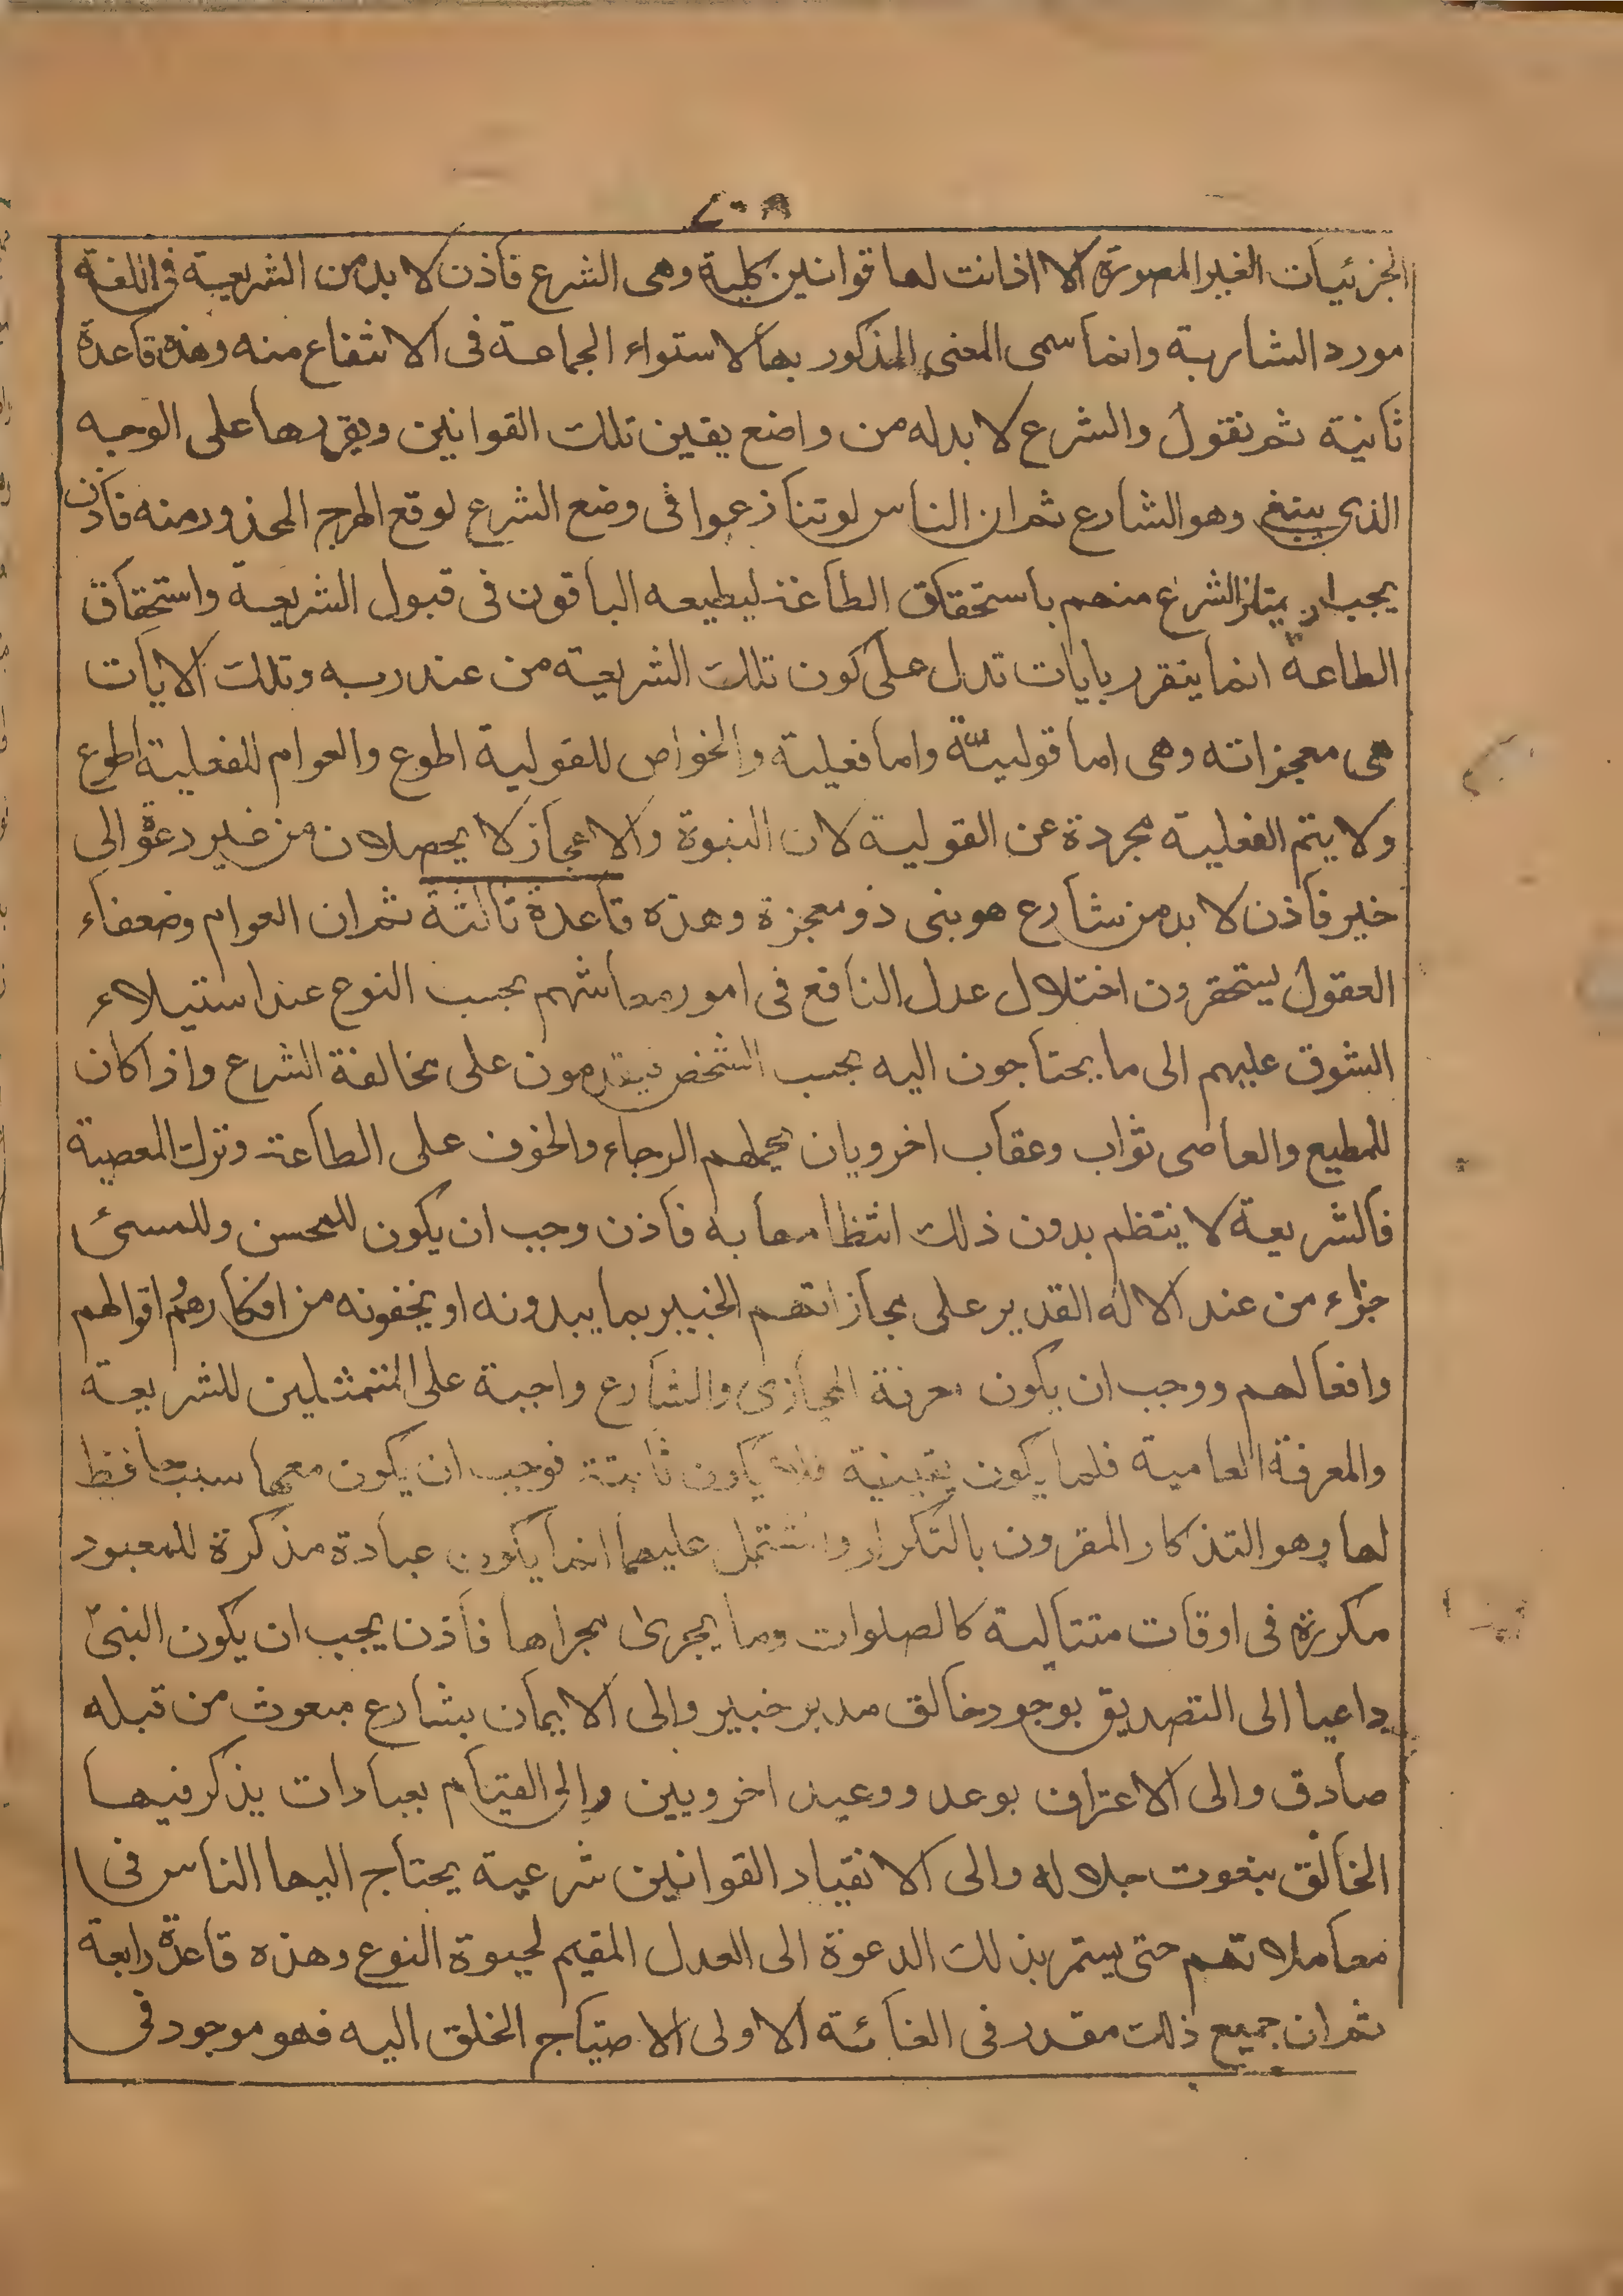 ٤٠٨
الجزئيات الغير المصورة الا اذا نت لها قوانين كلية وهى الشرع فاذن لا بد من الشريعية فى اللغة
مورد الشاربة وانما سمى المعنى المذكور بها لاستواء الجماعة فى الانتفاع منه وهذه قاعدة
ثانية ثم نقول والشرع لا بد له من واضع يقين تلك القوانين ويقررها على الوجه
الذى ينبغى وهو الشارع ثم ان الناس لو تنازعوا فى وضع الشرع لوقع الهرج المحذور منه فاذن
يجب ان يمتاز الشرع منهم باستحقاق الطاعة ليطيعه الباقون فى قبول الشريعة واستحقاق
الطاعة انما يتقرر بايات تدل على كون تلك الشريعة من عند ربه وتلك الايات
هى معجزاته وهى اما قولية واما فعلية والخواص للقولية اطوع والعوام للفعلية اطوع
ولا يتم الفعلية مجردة عن القولية لان النبوة والاعجاز لا يحصلان من غير دعوة الى
خير فاذن لا بد من شارع هو بنى ذو معجزة وهذه قاعدة ثالثة ثم ان العوام وضعفاء
العقول يستحقرون اختلال عدل النافع فى امور معاشهم بحسب النوع عند استيلاء
الشوق عليهم الى ما يحتاجون اليه بحسب الشخص فيقدمون على مخالفة الشرع واذا كان
للمطيع والعاصى ثواب وعقاب اخرويان يحملهم الرجاء والخوف على الطاعة وترك المعصية
فالشريعة لا ينتظم بدون ذلك انتظامها به فاذن وجب ان يكون للمحسن وللمسئ
جزاء من عند الاله القدير على مجازاتهم الخبير بما يبدونه او يخفونه من افكارهم اقوالهم
وافعالهم ووجب ان يكون معرفة المجازى والشارع واجبة على المتمثلين للشريعة
والمعرفة العامية فلما يكون يقينية فلا يكون ثابتة فوجب ان يكون معها سبب حافظ
لها وهو التذكار المقرون بالتكرار والمشتمل عليهما انما يكون عبادة مذكرة للمعبود
مكررة فى اوقات متتالية كالصلوات وما يجرى مجراها فاذن يجب ان يكون النبى
داعيا الى التصديق بوجود خالق مدبر خبير والى الايمان بشارع مبعوث من قبله
صادق والى الاعتراف بوعد ووعيد اخرويين والى القيام بعبادات يذكر فيها
الخالق بنعوت جلاله والى الانقياد القوانين شرعية يحتاج اليها الناس فى
معاملاتهم حتى يستمر بذلك الدعوة الى العدل المقيم لحيوة النوع وهذه قاعدة رابعة
ثم ان جميع ذلك مقدر فى العنائة الاولى الاحتياج الخلق اليه فهو موجود فى